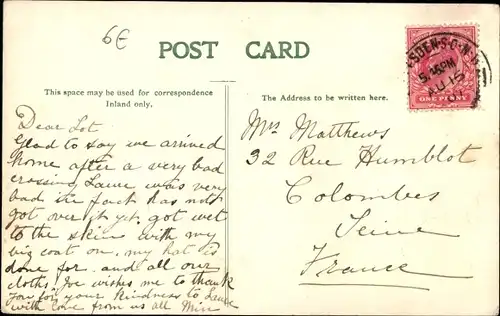 6€
POST CARD
This space may be used for correspondence
Inland only.
The Address to be written here.
ONE PENNY
5.45PM
AU 15
Dear Lot.
Glad to say we arrived
home after a very bad
crossing Laure was very
bad in fact has not
got over it yet. got wet
to the skin with my
big coat on. my hat is
done for. and all our
cloths. Joe wishes me to thank
you for your kindness to Laure
with love from us all Min
Mrs Matthews
32 Rue Humblot
Colombes
Seine
France